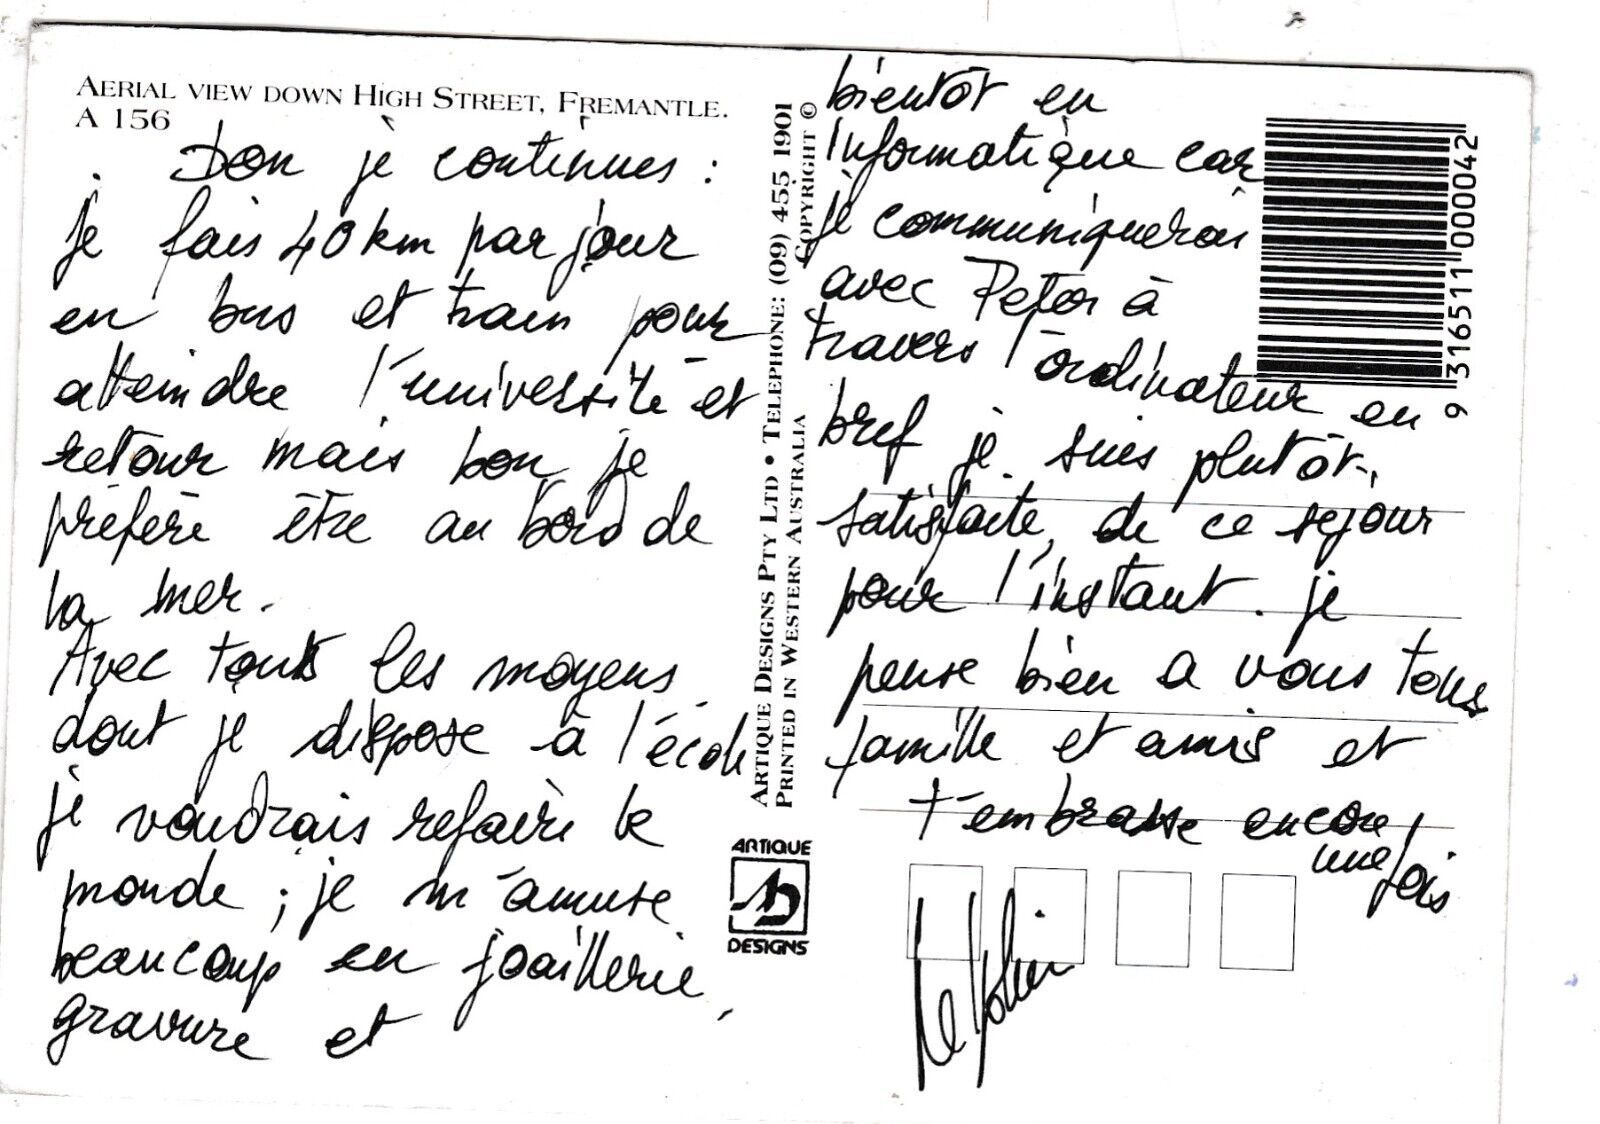 AERIAL VIEW DOWN HIGH STREET, FREMANTLE.
A 156
. Bon je continues :
je fais 40 km par jour
en bus et train pour
atteindre l'université et
retour mais bon je
préfère être au bord de
la mer.
Avec tous les moyens
dont je dispose à l'école
je voudrais refaire le
monde ; je m'amuse
beaucoup en joaillerie,
gravure et
ARTIQUE DESIGNS PTY LTD • TELEPHONE: (09) 455 1901
PRINTED IN WESTERN AUSTRALIA COPYRIGHT ©
ARTIQUE
DESIGNS
bientôt en
Informatique car
je communiquerai
avec Peter à
travers l'ordinateur en
bref je suis plutôt
satisfaite, de ce séjour
pour l'instant. je
pense bien a vous tous
famille et amis et
t'embrasse encore
une fois
9 316511 000042